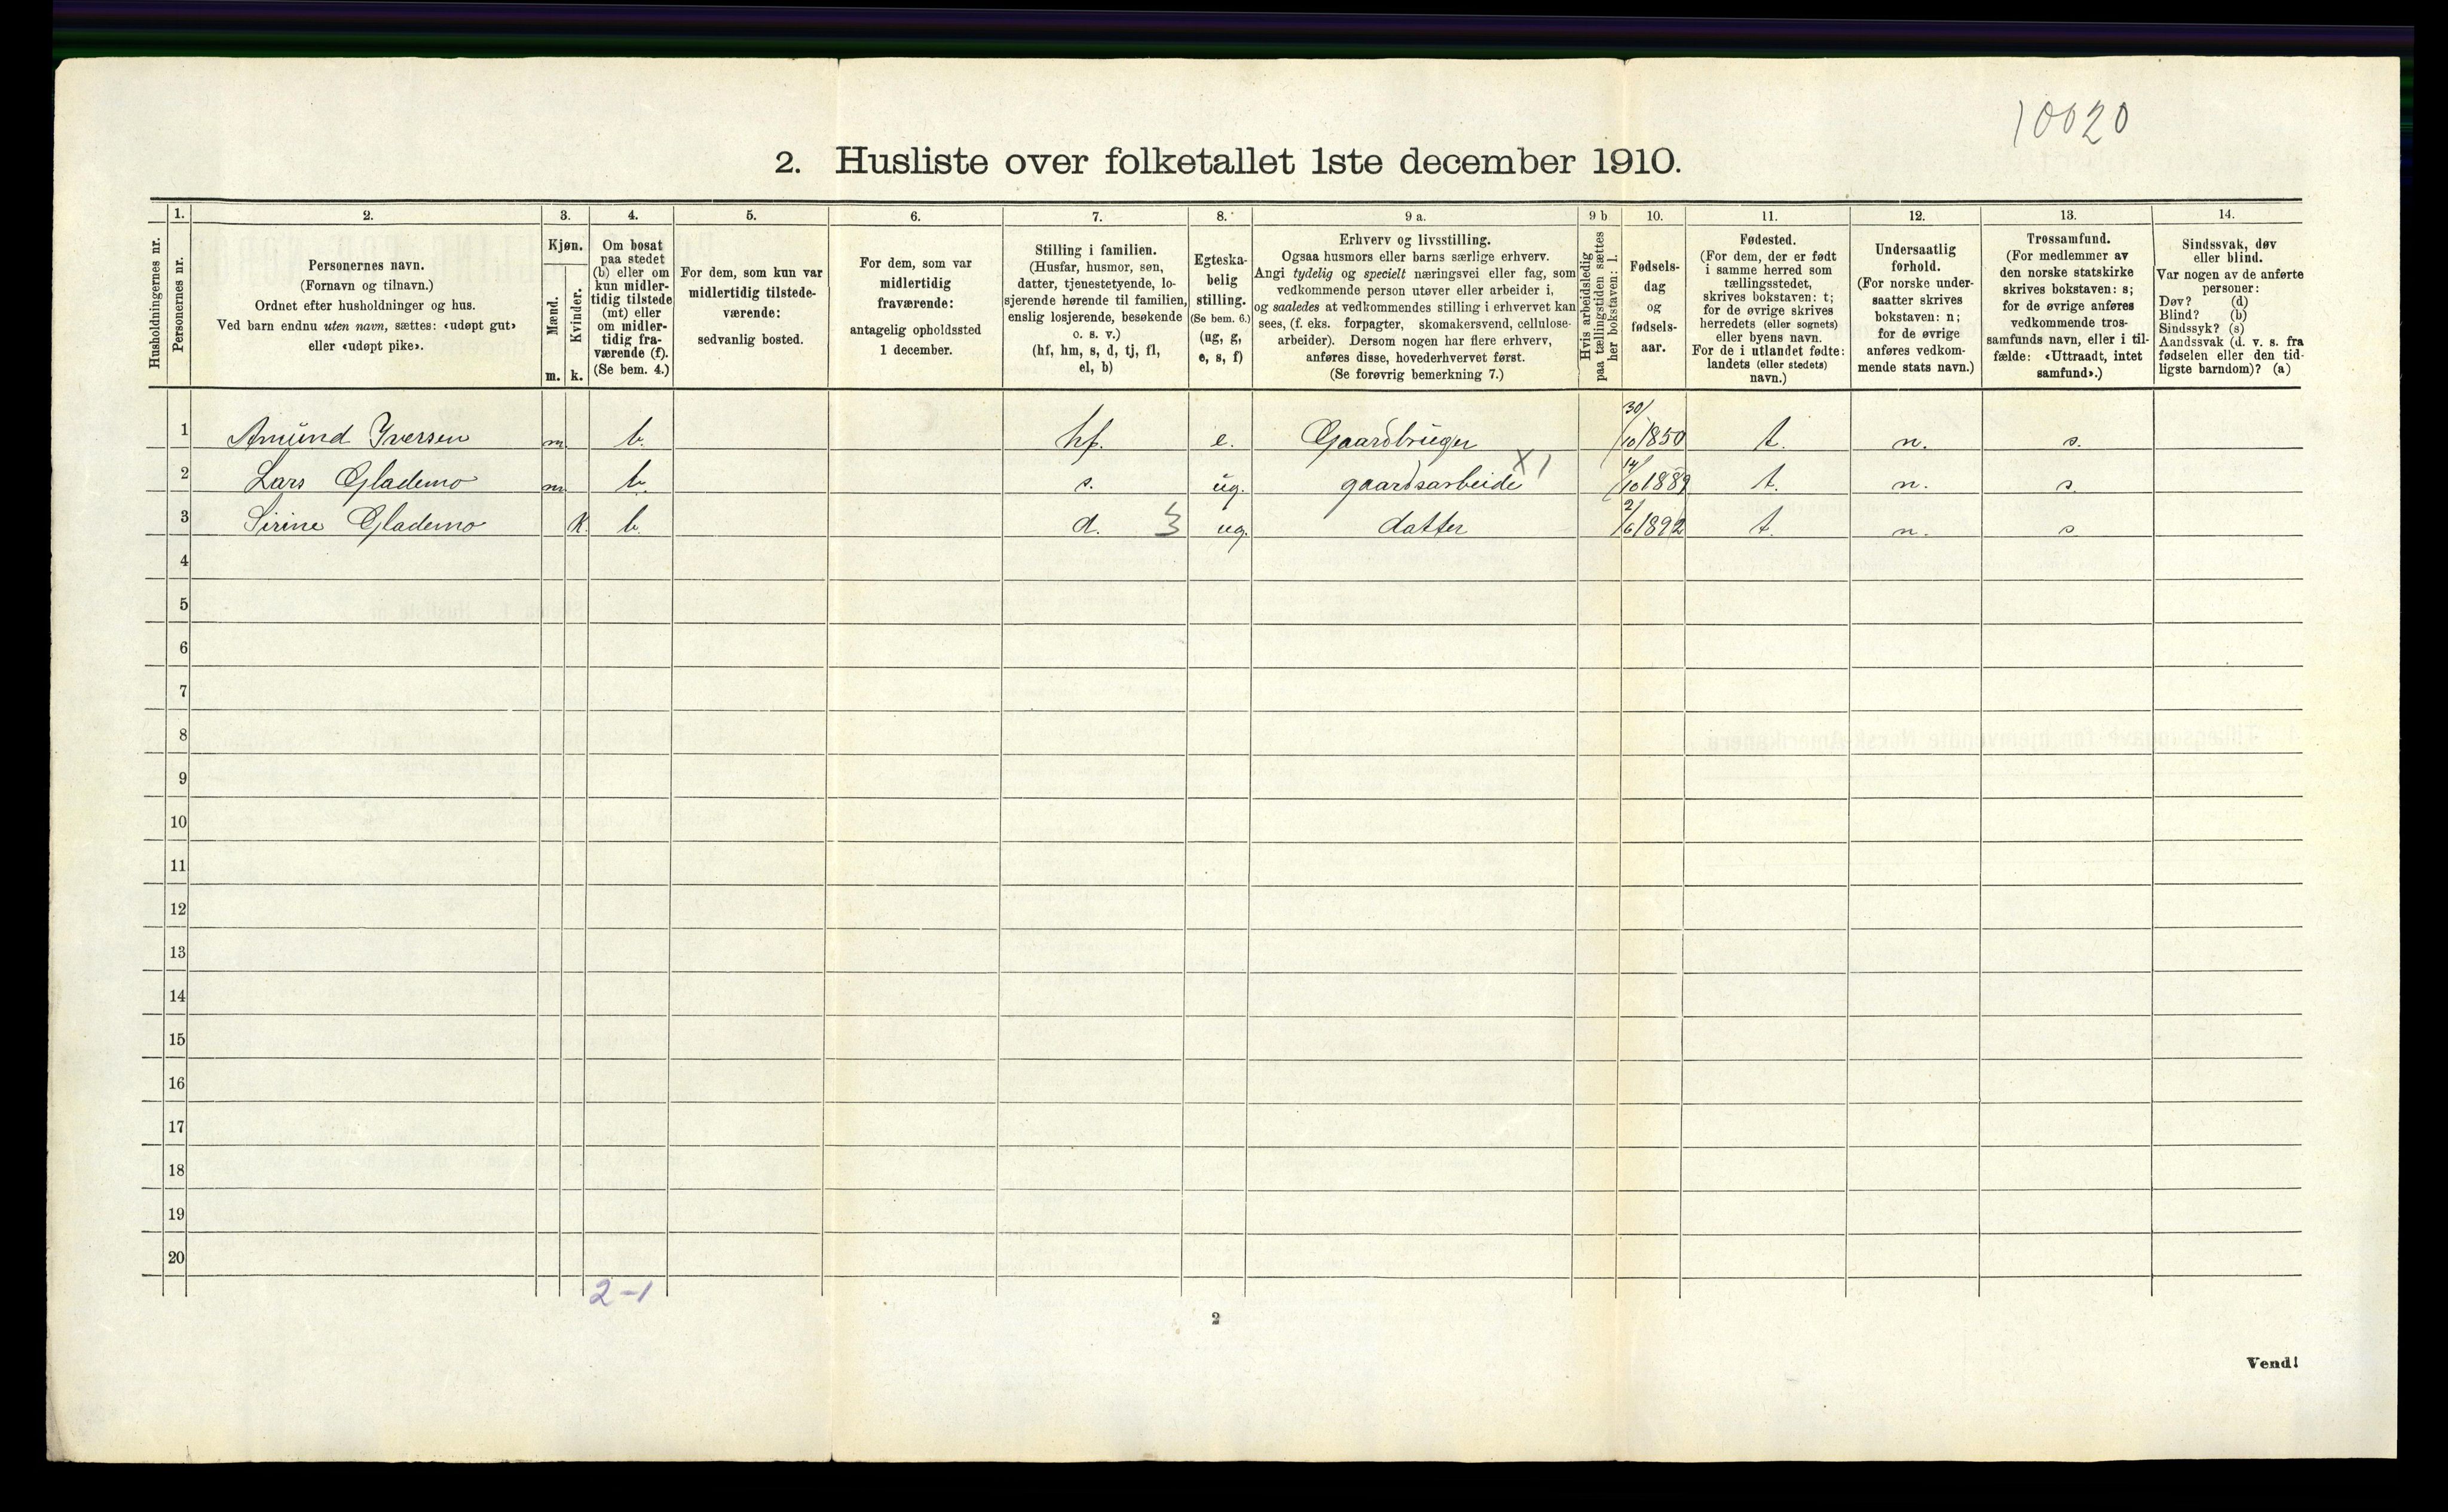 10020
2. Husliste over folketallet 1ste december 1910.
Husholdningernes nr.
1.
Personernes nr.
2.
Personernes navn.
(Fornavn og tilnavn.)
Ordnet efter husholdninger og hus.
Ved barn endnu uten navn, sættes: «udøpt gut»
eller «udøpt pike».
3.
Kjøn.
Mænd.
m.
Kvinder.
k.
4.
Om bosat
paa stedet
(b) eller om
kun midler-
tidig tilstede
(mt) eller
om midler-
tidig fra-
værende (f).
(Se bem. 4.)
5.
For dem, som kun var
midlertidig tilstede-
værende:
sedvanlig bosted.
6.
For dem, som var
midlertidig
fraværende:
antagelig opholdssted
1 december.
7.
Stilling i familien.
(Husfar, husmor, søn,
datter, tjenestetyende, lo-
sjerende hørende til familien,
enslig losjerende, besøkende
o. s. v.)
(hf, hm, s, d, tj, fl,
el, b)
8.
Egteska-
belig
stilling.
(Se bem. 6.)
(ug, g,
e, s, f)
9 a.
Erhverv og livsstilling.
Ogsaa husmors eller barns særlige erhverv.
Angi tydelig og specielt næringsvei eller fag, som
vedkommende person utøver eller arbeider i,
og saaledes at vedkommendes stilling i erhvervet kan
sees, (f. eks. forpagter, skomakersvend, cellulose-
arbeider). Dersom nogen har flere erhverv,
anføres disse, hovederhvervet først.
(Se forøvrig bemerkning 7.)
9 b
Hvis arbeidsledig
paa tællingstiden sættes
her bokstaven: l.
10.
Fødsels-
dag
og
fødsels-
aar.
11.
Fødested.
(For dem, der er født
i samme herred som
tællingsstedet,
skrives bokstaven: t;
for de øvrige skrives
herredets (eller sognets)
eller byens navn.
For de i utlandet fødte:
landets (eller stedets)
navn.)
12.
Undersaatlig
forhold.
(For norske under-
saatter skrives
bokstaven: n;
for de øvrige
anføres vedkom-
mende stats navn.)
13.
Trossamfund.
(For medlemmer av
den norske statskirke
skrives bokstaven: s;
for de øvrige anføres
vedkommende tros-
samfunds navn, eller i til-
fælde: «Uttraadt, intet
samfund».)
14.
Sindssvak, døv
eller blind.
Var nogen av de anførte
personer:
Døv? (d)
Blind? (b)
Sindssyk? (s)
Aandssvak (d. v. s. fra
fødselen eller den tid-
ligste barndom)? (a)
1 Amund Iversen m. b. hf. e. Gaardbruger 30/10 1850 t. n. s.
2 Lars Glademo m b. s. ug. gaardsarbeide X 1 14/10 1889 t. n. s.
3 Sirine Glademo K. b. d. 3 ug. datter 2/6 1892 t. n. s.
4
5
6
7
8
9
10
11
12
13
14
15
16
17
18
19
20
2-1
2
Vend!